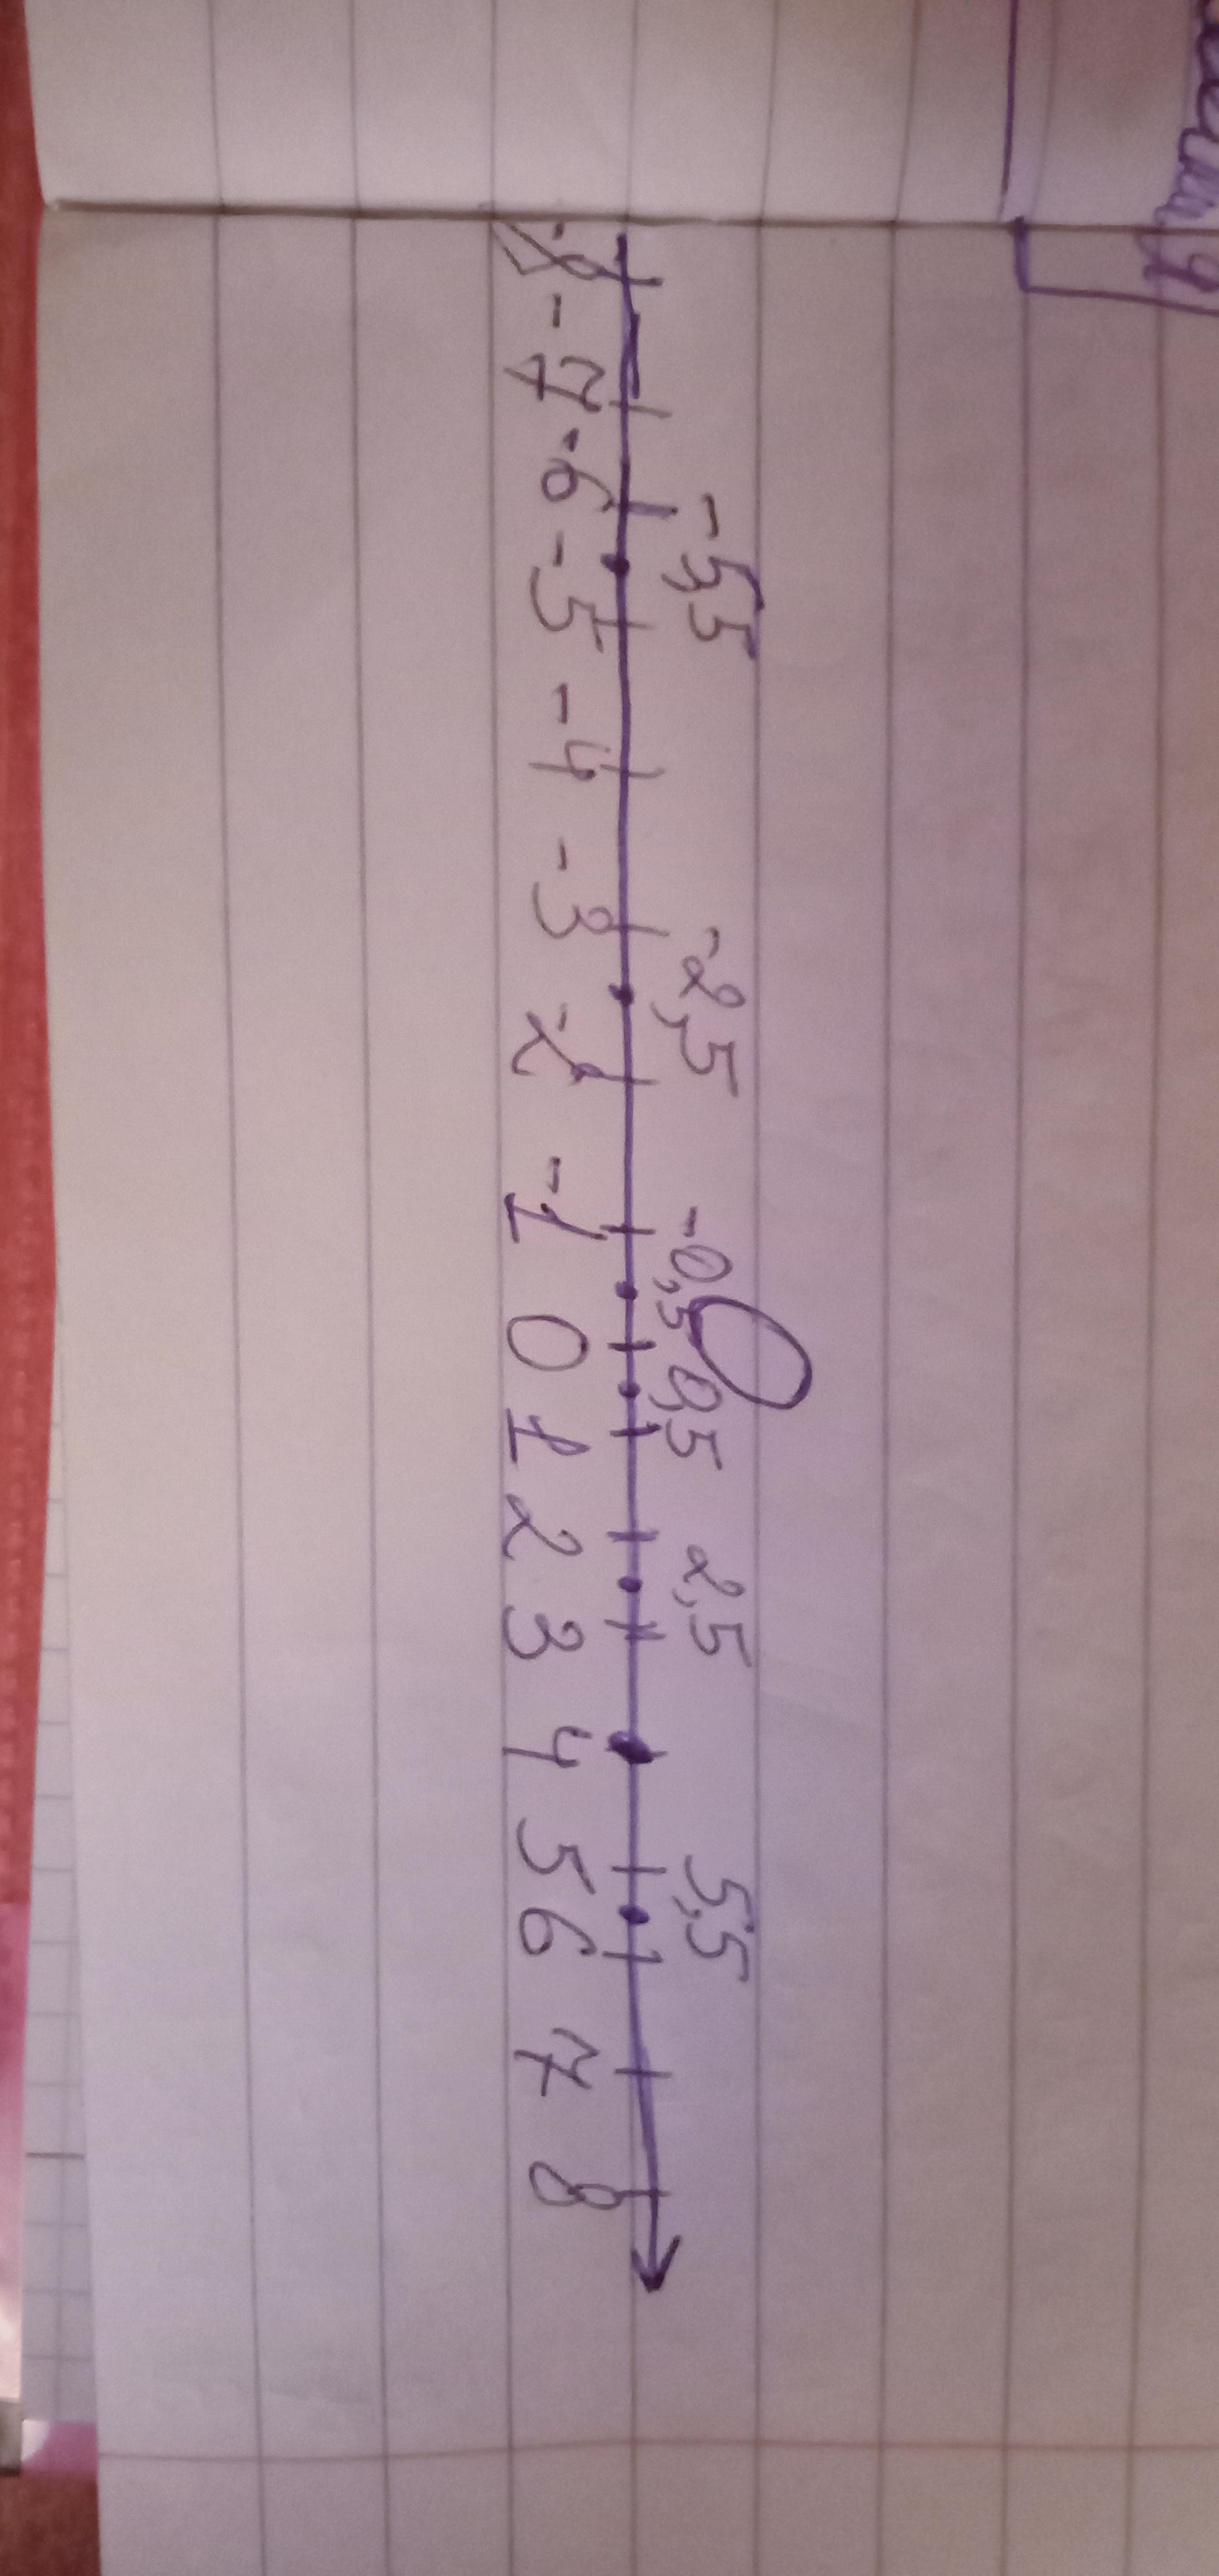 -5,5 -2,5 -0,5 0 0,5 2,5 5,5
-8 -7 -6 -5 -4 -3 -2 -1 0 1 2 3 4 5 6 7 8